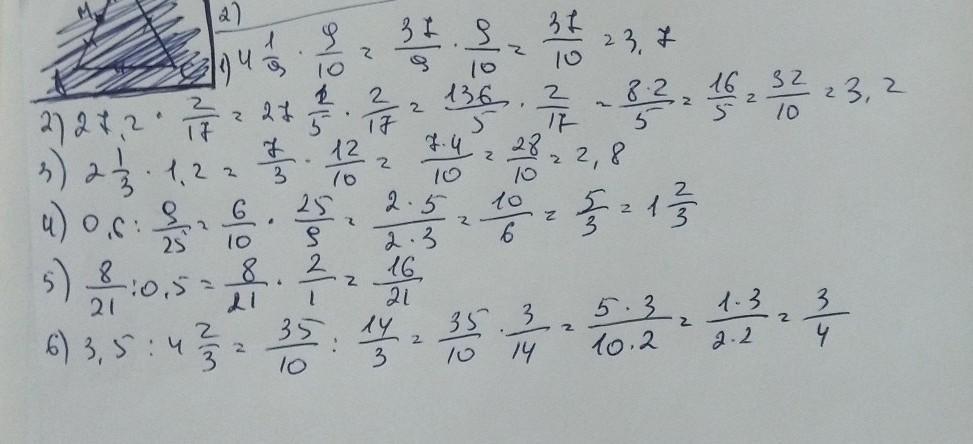 M
2)
1) 4 1/9 · 9/10 = 37/9 · 9/10 = 37/10 = 3,7
2) 27,2 · 2/17 = 27 1/5 · 2/17 = 136/5 · 2/17 = 8·2/5 = 16/5 = 32/10 = 3,2
3) 2 1/3 · 1,2 = 7/3 · 12/10 = 7·4/10 = 28/10 = 2,8
4) 0,6 : 9/25 = 6/10 · 25/9 = 2·5/2·3 = 10/6 = 5/3 = 1 2/3
5) 8/21 : 0,5 = 8/21 · 2/1 = 16/21
6) 3,5 : 4 2/3 = 35/10 : 14/3 = 35/10 · 3/14 = 5·3/10·2 = 1·3/2·2 = 3/4